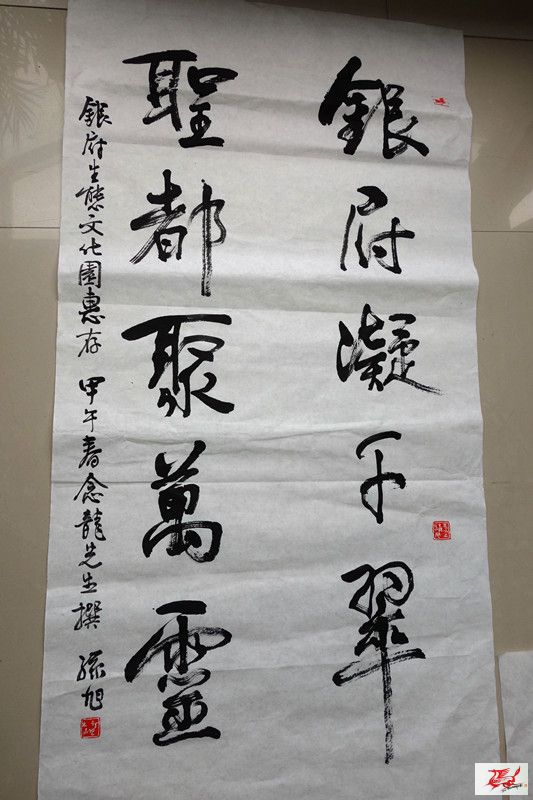 銀府凝千翠
聖都聚萬靈
銀府生態文化園惠存 甲午春念龍先生撰 孫旭